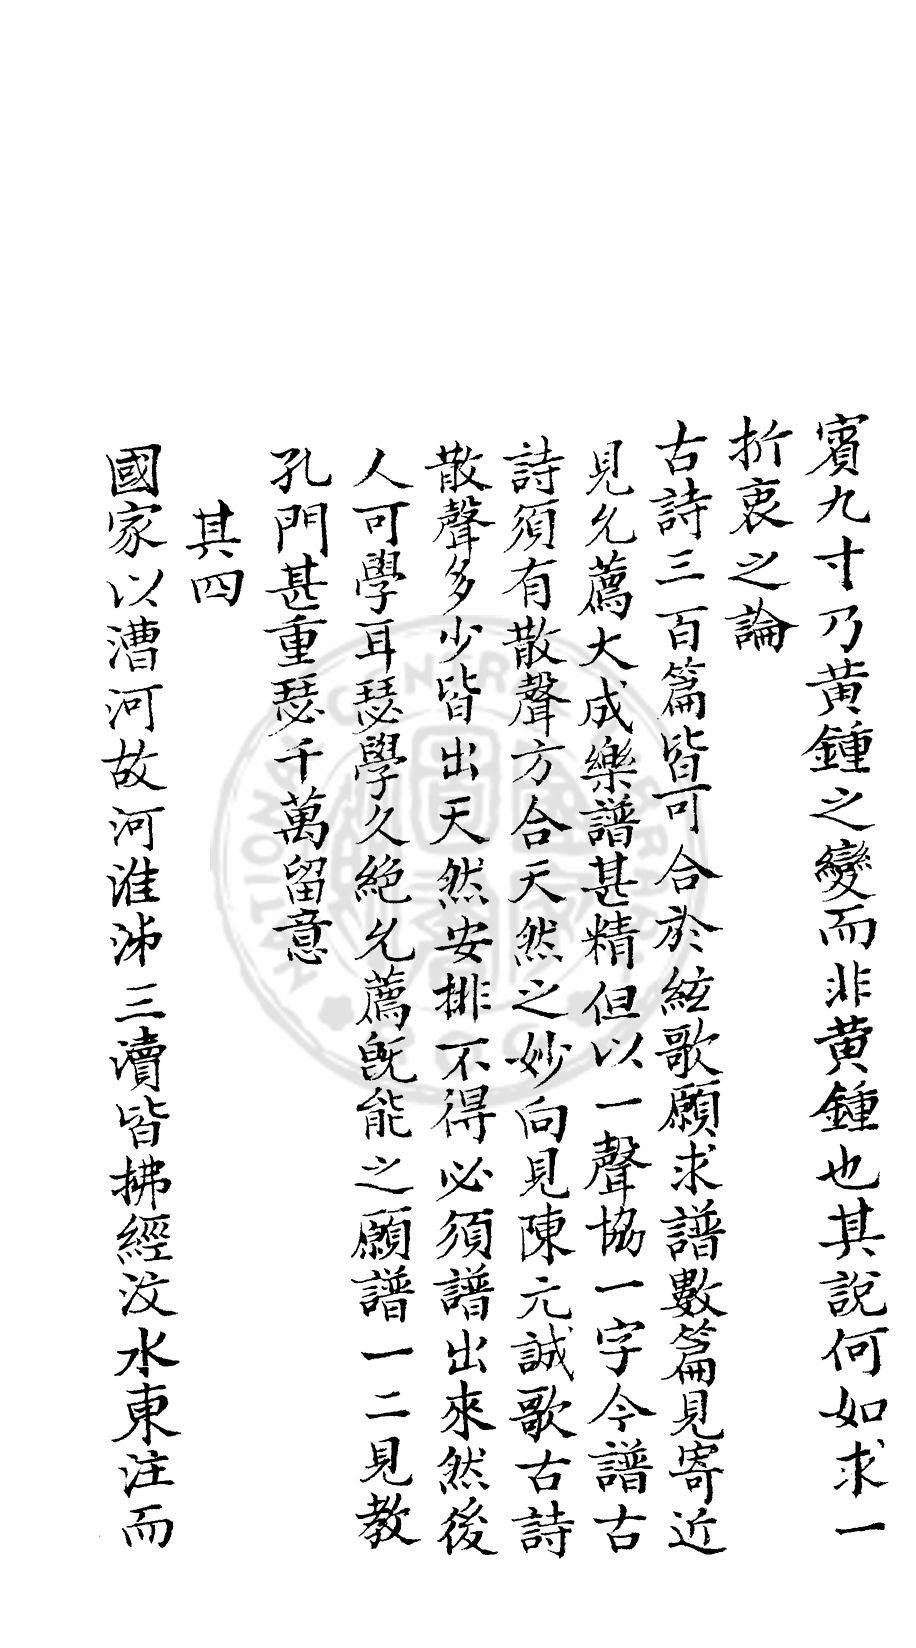 賓九寸乃黄鍾之變而非黄鍾也其說何如求一
折衷之論
古詩三百篇皆可合於絃歌願求譜數篇見寄近
見允薦大成樂譜甚精但以一聲協一字今譜古
詩須有散聲方合天然之妙向見陳元誠歌古詩
散聲多少皆出天然安排不得必須譜出來然後
人可學耳瑟學久絶允薦既能之願譜一二見教
孔門甚重瑟千萬留意
其四
國家以漕河故河淮泲三瀆皆拂經汶水東注而